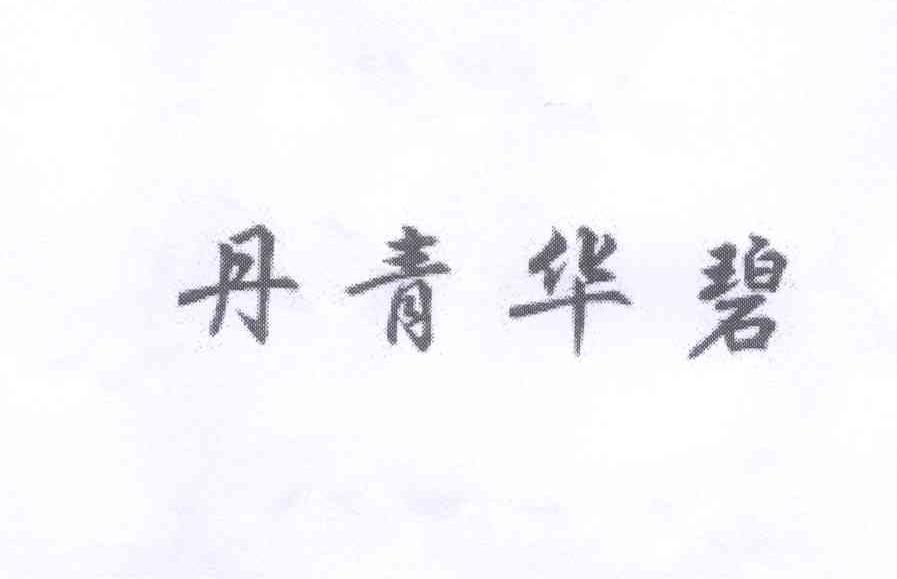 丹青华碧